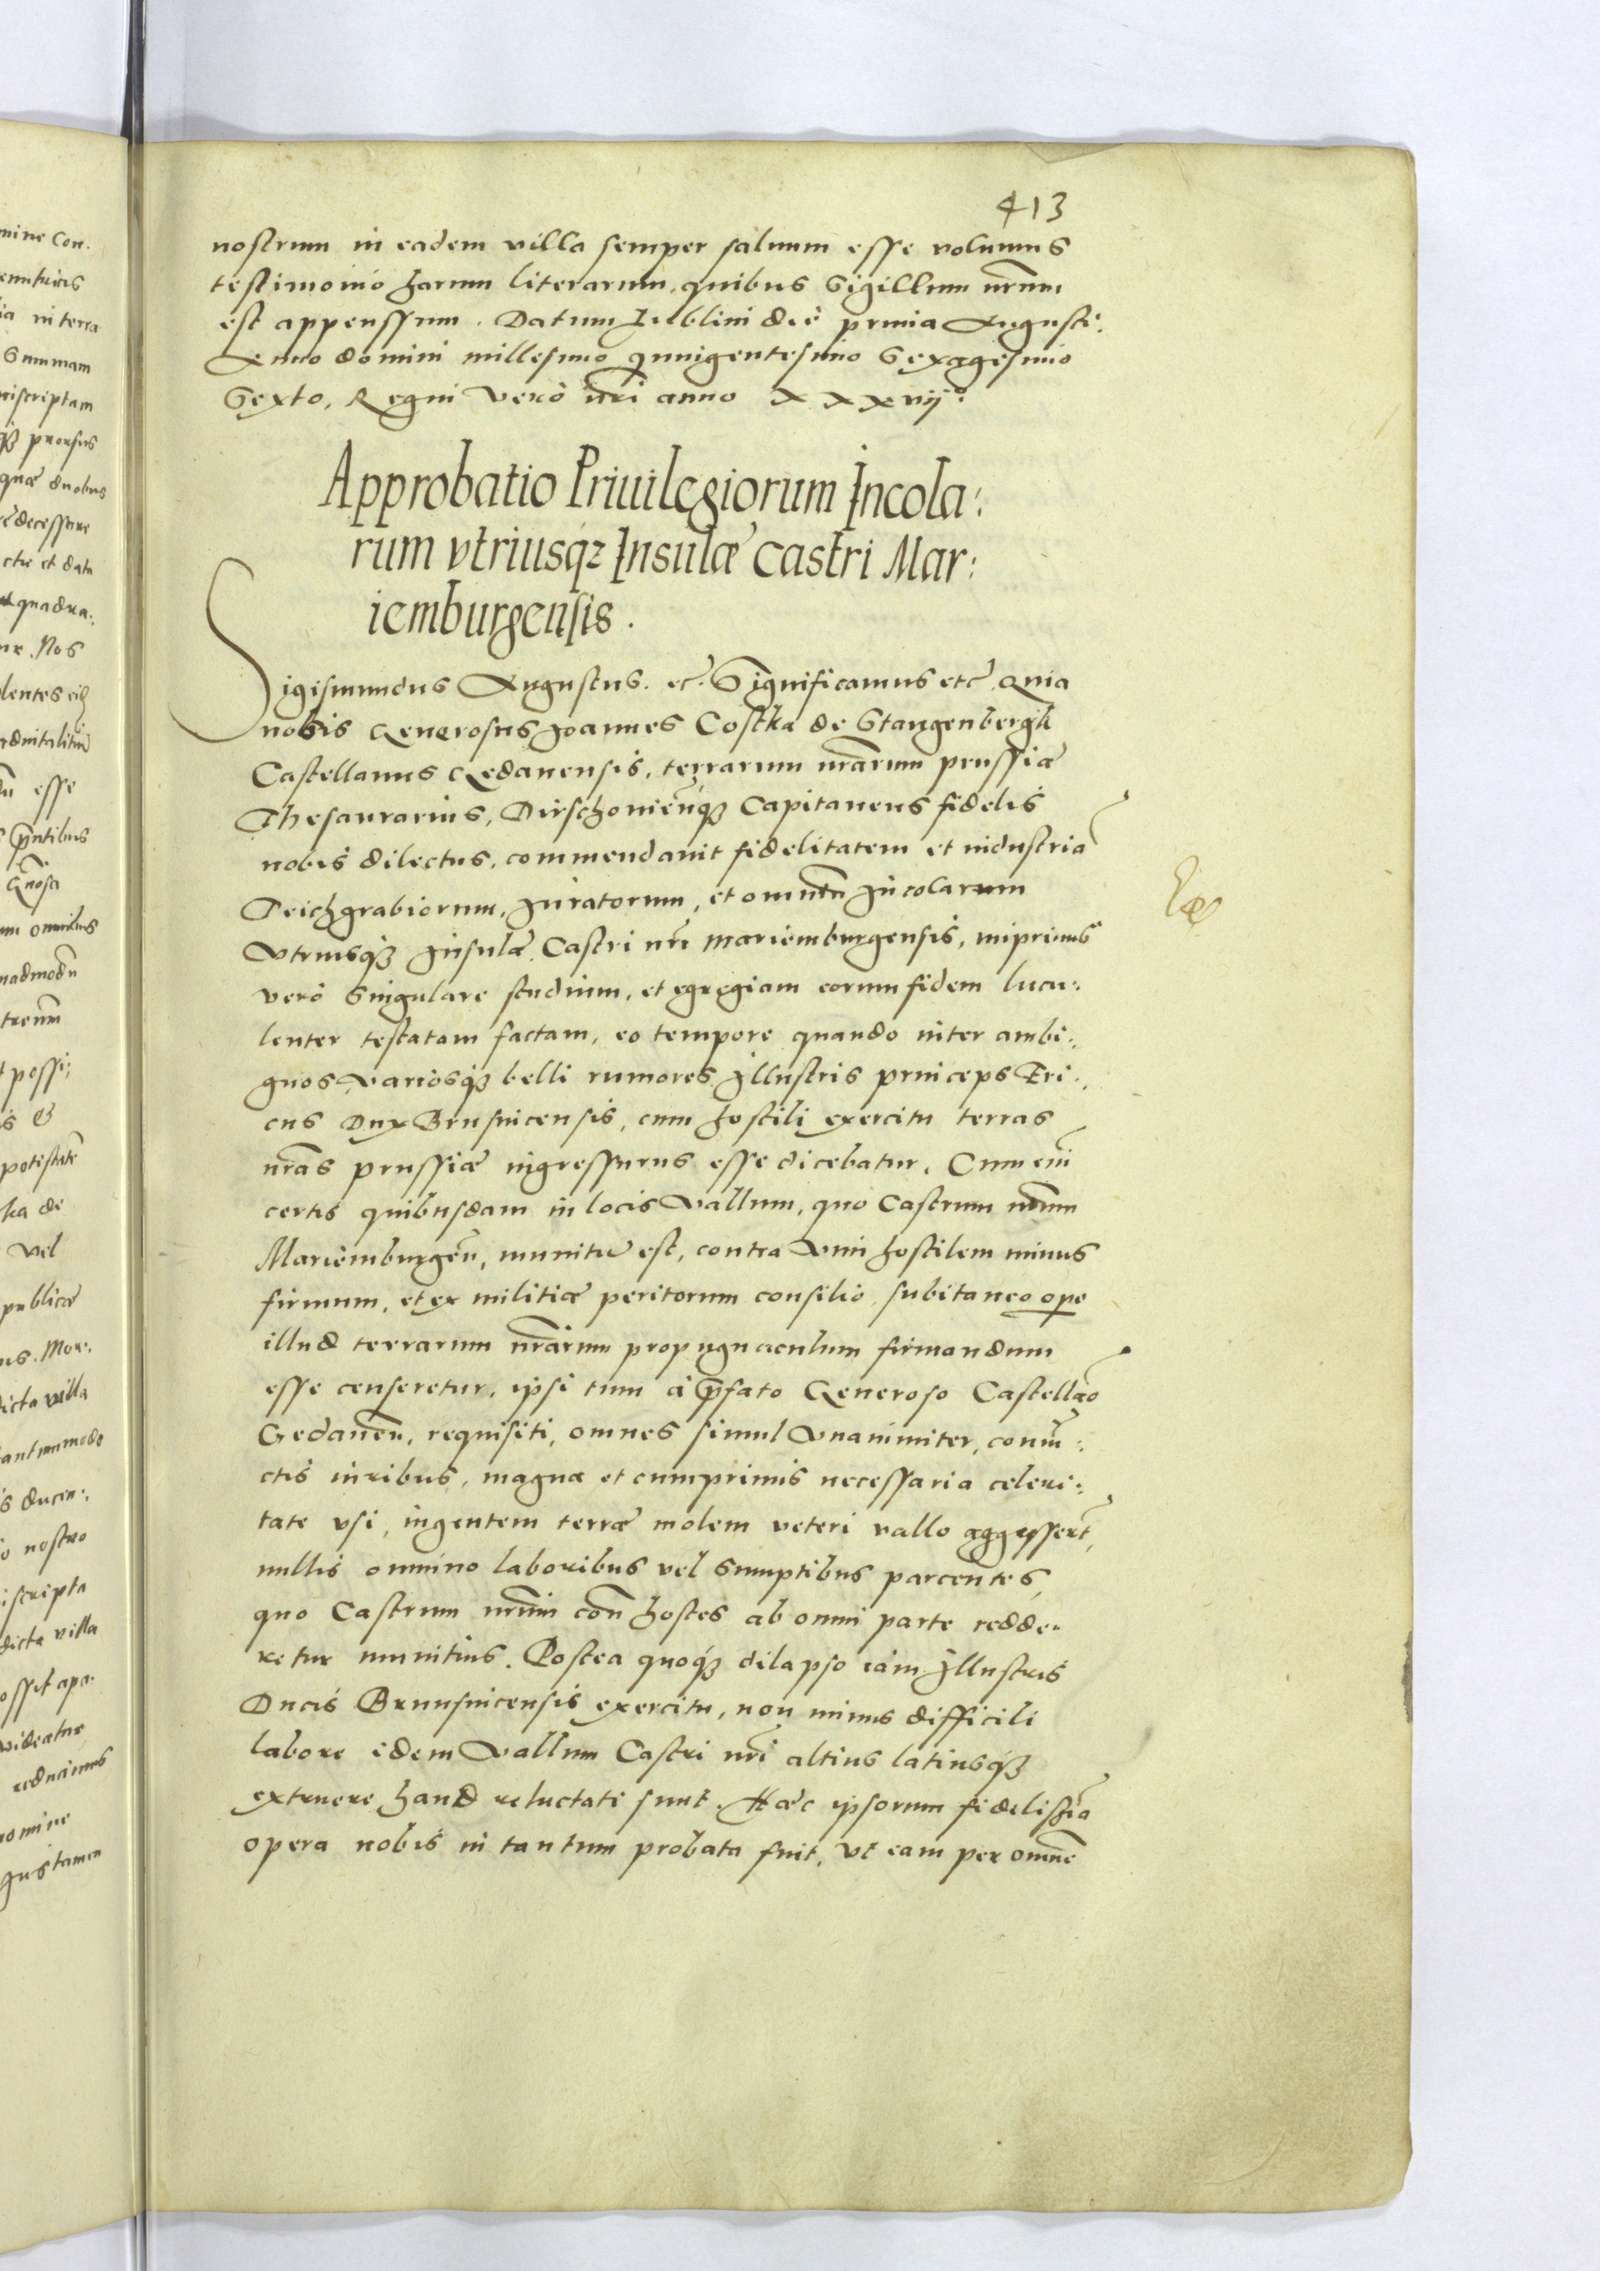 413
nostrum in eadem villa semper saluum esse volumus
testimonio harum literarum, quibus Sigillum nr̃um
est appenssum. Datum Lublini die prima Augusti.
Anno domini millesimo Quingentesimo Sexagesimo
Sexto, Regni vero nr̃i anno XXXvij:
Approbatio Priuilegiorum Incola:
rum vtriusqꝫ Insulæ Castri Mar:
iemburgensis.
Sigismundus Augustus. etc̃. Significamus etc̃. Quia
nobis Generosus Joannes Costka de Stangenbergk
Castellanus Gedanensis, terrarum nr̃arum prussiæ
Thesaurarius, Dirschouien̄qꝫ Capitaneus fidelis
nobis dilectus, commendauit fidelitatem et industriã
Deichgrabiorum, Juratorum, et omniũ Incolarum
Vtriusqꝫ Insulæ Castri nr̃i Mariemburgensis, inprimis
vero Singulare studium, et egregiam eorum fidem lucu:
lenter testatam factam, eo tempore quando inter ambi:
guos Variosqꝫ belli rumores Illustris princeps Eri:
cus Dux Brusuicensis, cum hostili exercitu terras
nr̃as prussiæ ingressurus esse dicebatur. Cum eni᷉
certis quibusdam in locis Vallum, quo Castrum nr̃um
Mariemburgen̄, munitũ est, contra Vim hostilem minus
firmum, et ex militiæ peritorum consilio, subitaneo ope
illud terrarum nr̃arum propugnaculum firmandum
esse censeretur, ipsi tum à p̃fato Generoso Castellão
Gedanen̄, requisiti, omnes simul Vnanimiter, coniũ:
ctis viribus, magna et cumprimis necessaria celeri:
tate vsi, ingentem terræ molem veteri vallo aggesser̃t,
nullis omnino laboribus vel Sumptibus parcentes,
quo Castrum nr̃um con̄ hostes ab omni parte redde:
retur munitius. Postea quoqꝫ dilapso iam Illustris
Ducis Brunsuicensis exercitu, non minus difficili
labore idem Vallum Castri nr̃i altius latiusqꝫ
extruere haud reluctati sunt. Hæc ipsorum fidelissĩa
opera nobis in tantum probata fuit, vt eam per omnẽ